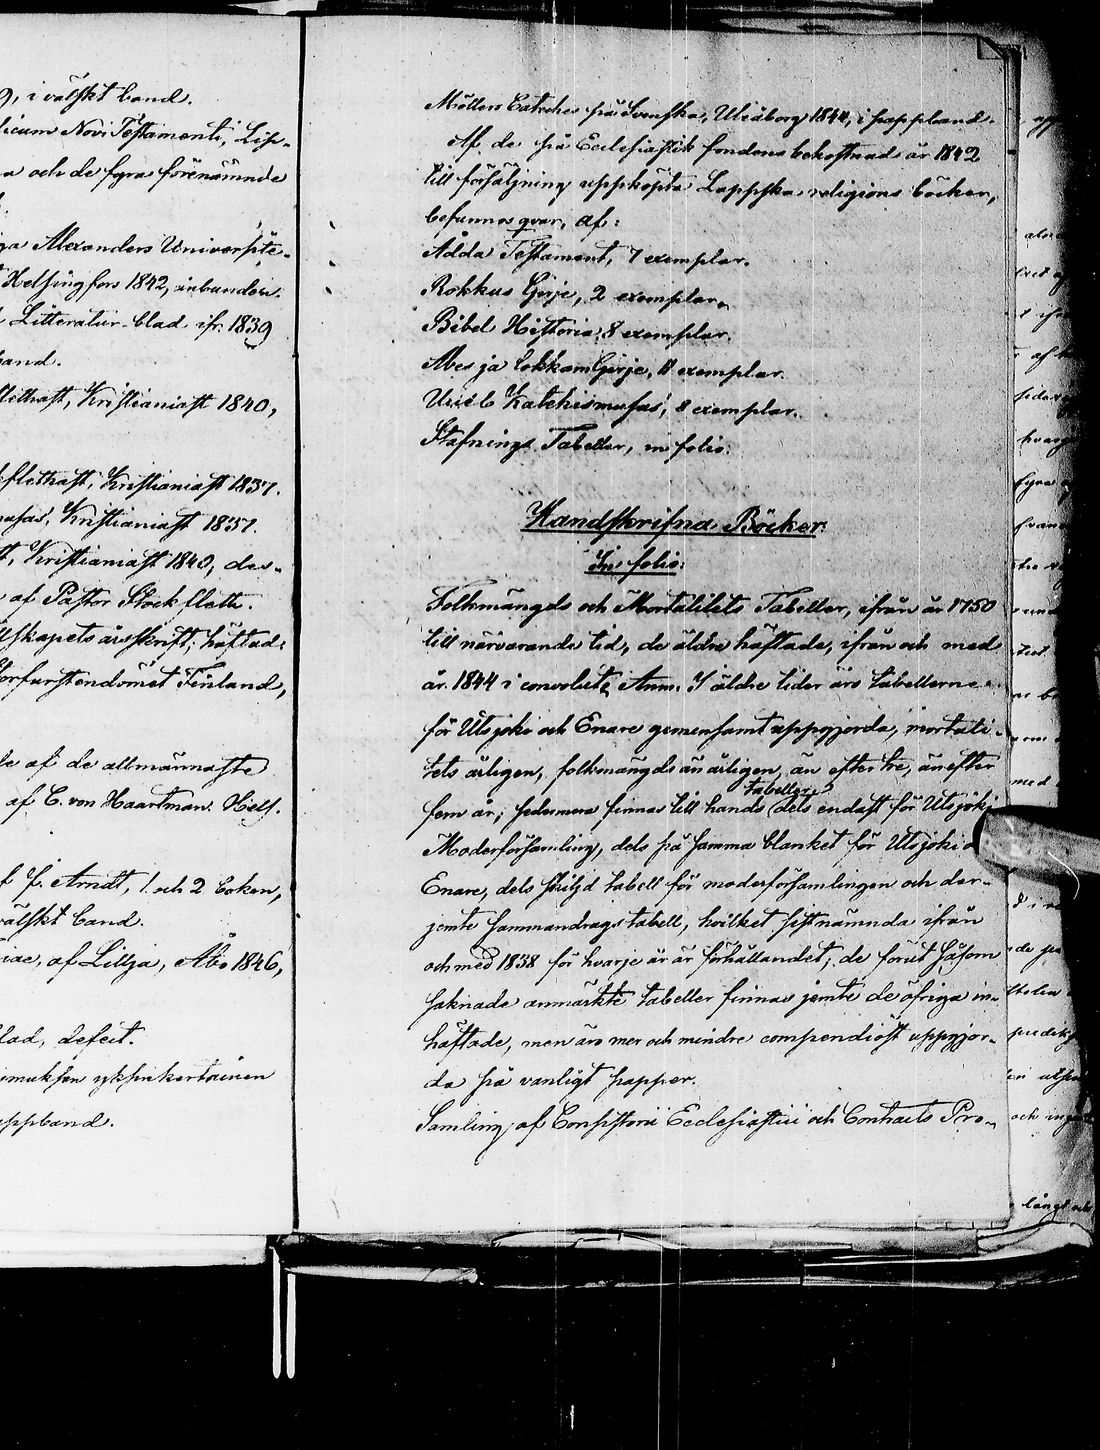 9, i välskt band.
licum Novi Testamenti, Lip-
a och de fyra förenämnde
ga Alexanders Universite-
Helsingfors 1842, inbunden.
Litteratur-blad ifr. 1839
band.
flethast, Kristianiast 1840,
kflethast, Kristianiast 1837.
musas, Kristianiast 1837.
st, Kristianiast 1840, des-
af Pastor Stockfleth.
llskapets årsskrift, häftad.
orfurstendömet Finland,
de af de allmännaste
af C. von Haartman. Hels.
f J. Arndt, 1 och 2 boken,
välskt band.
iae, af Lillja, Åbo 1846,
lad, defect.
imuksen yksinkertainen
appband.
Möllers Cateches på Svenska, Uleåborg 1844, i pappband.
Af de på Ecclesiastik fondens bekostnad år 1842
till försäljning uppköpta Lappska religions böcker,
befunnos qvar, af:
Ådda Testament, 7 exemplar.
Rokkus Girje, 2 exemplar.
Bibel Historia, 8 exemplar.
Abes ja Lokkam Girje, 11 exemplar.
Uccèb Katekismusas, 8 exemplar.
Stafnings Tabeller, in folio.
Handskrifna Böcker.
In folio.
Folkmängds och Mortalitets Tabeller, ifrån år 1750
till närvarande tid, de äldre häftade, ifrån och med
år 1844 i convolut. Anm. I äldre tider äro tabellerne
för Utsjoki och Enare gemensamt uppgjorda, mortali-
tets årligen, folkmängds än årligen, än efter tre, än efter
fem år; sedermera finnas till hands tabeller dels endast för Utsjoki
Moderförsamling, dels på samma blanket för Utsjoki o
Enare, dels skiljd tabell för moderförsamlingen och der-
jemte sammandrags tabell, hvilket sistnämnda ifrån
och med 1838 för hvarje år är förhållandet; de förut såsom
saknade anmärkte tabeller finnas jemte de öfriga in-
häftade, men äro mer och mindre compendiöst uppgjor-
da på vanligt papper.
Samling af Consistorii Ecclesiastici och Contracts Pro-
långt och